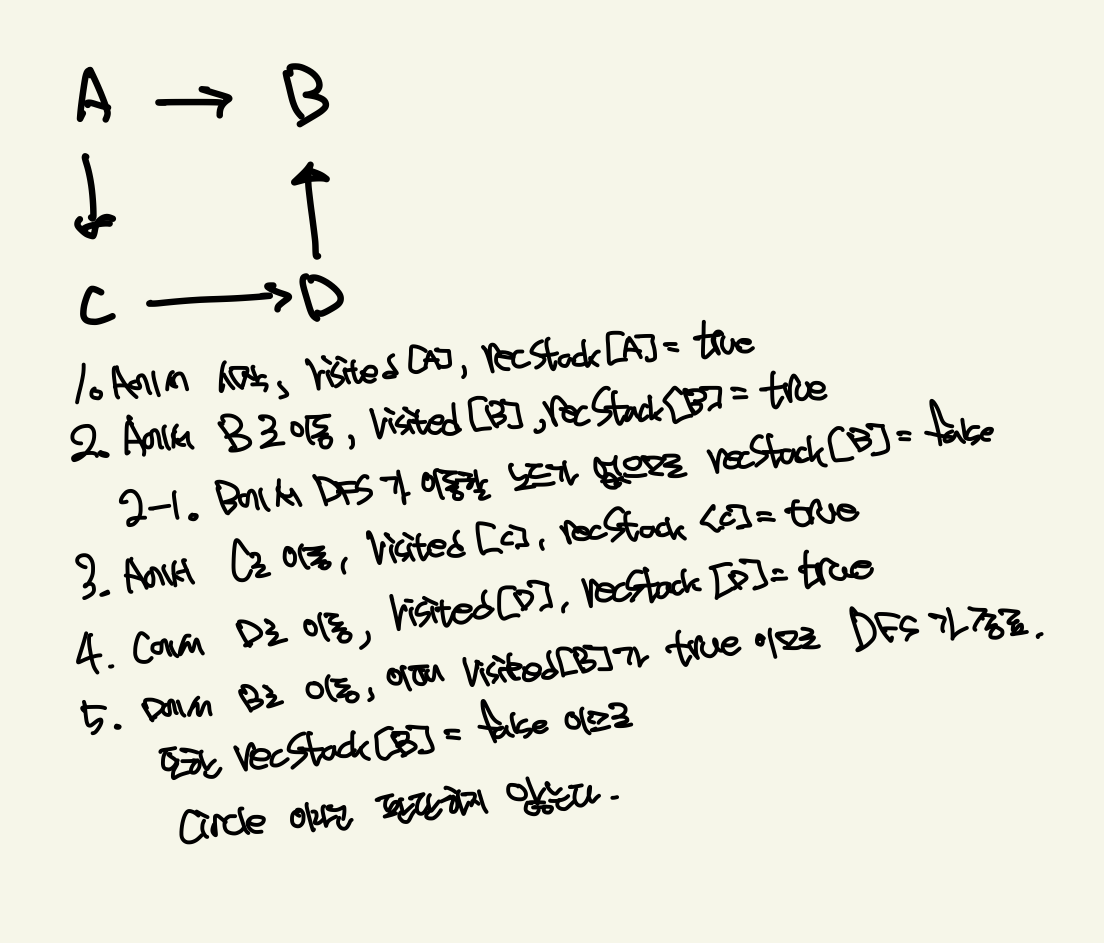 A → B
C → D
1. A에서 시작, visited [A], recStack[A] = true
2. A에서 B로 이동, visited [B], recStack[B] = true
2-1. B에서 DFS가 이동할 노드가 없으므로 recStack[B] = false
3. A에서 C로 이동, visited [C], recStack [C] = true
4. C에서 D로 이동, visited[D], recStack [D] = true
5. D에서 B로 이동, 이때 visited[B]가 true 이므로 DFS가 종료.
또한 recStack[B] = false 이므로
Circle 이라곤 판단하지 않는다.